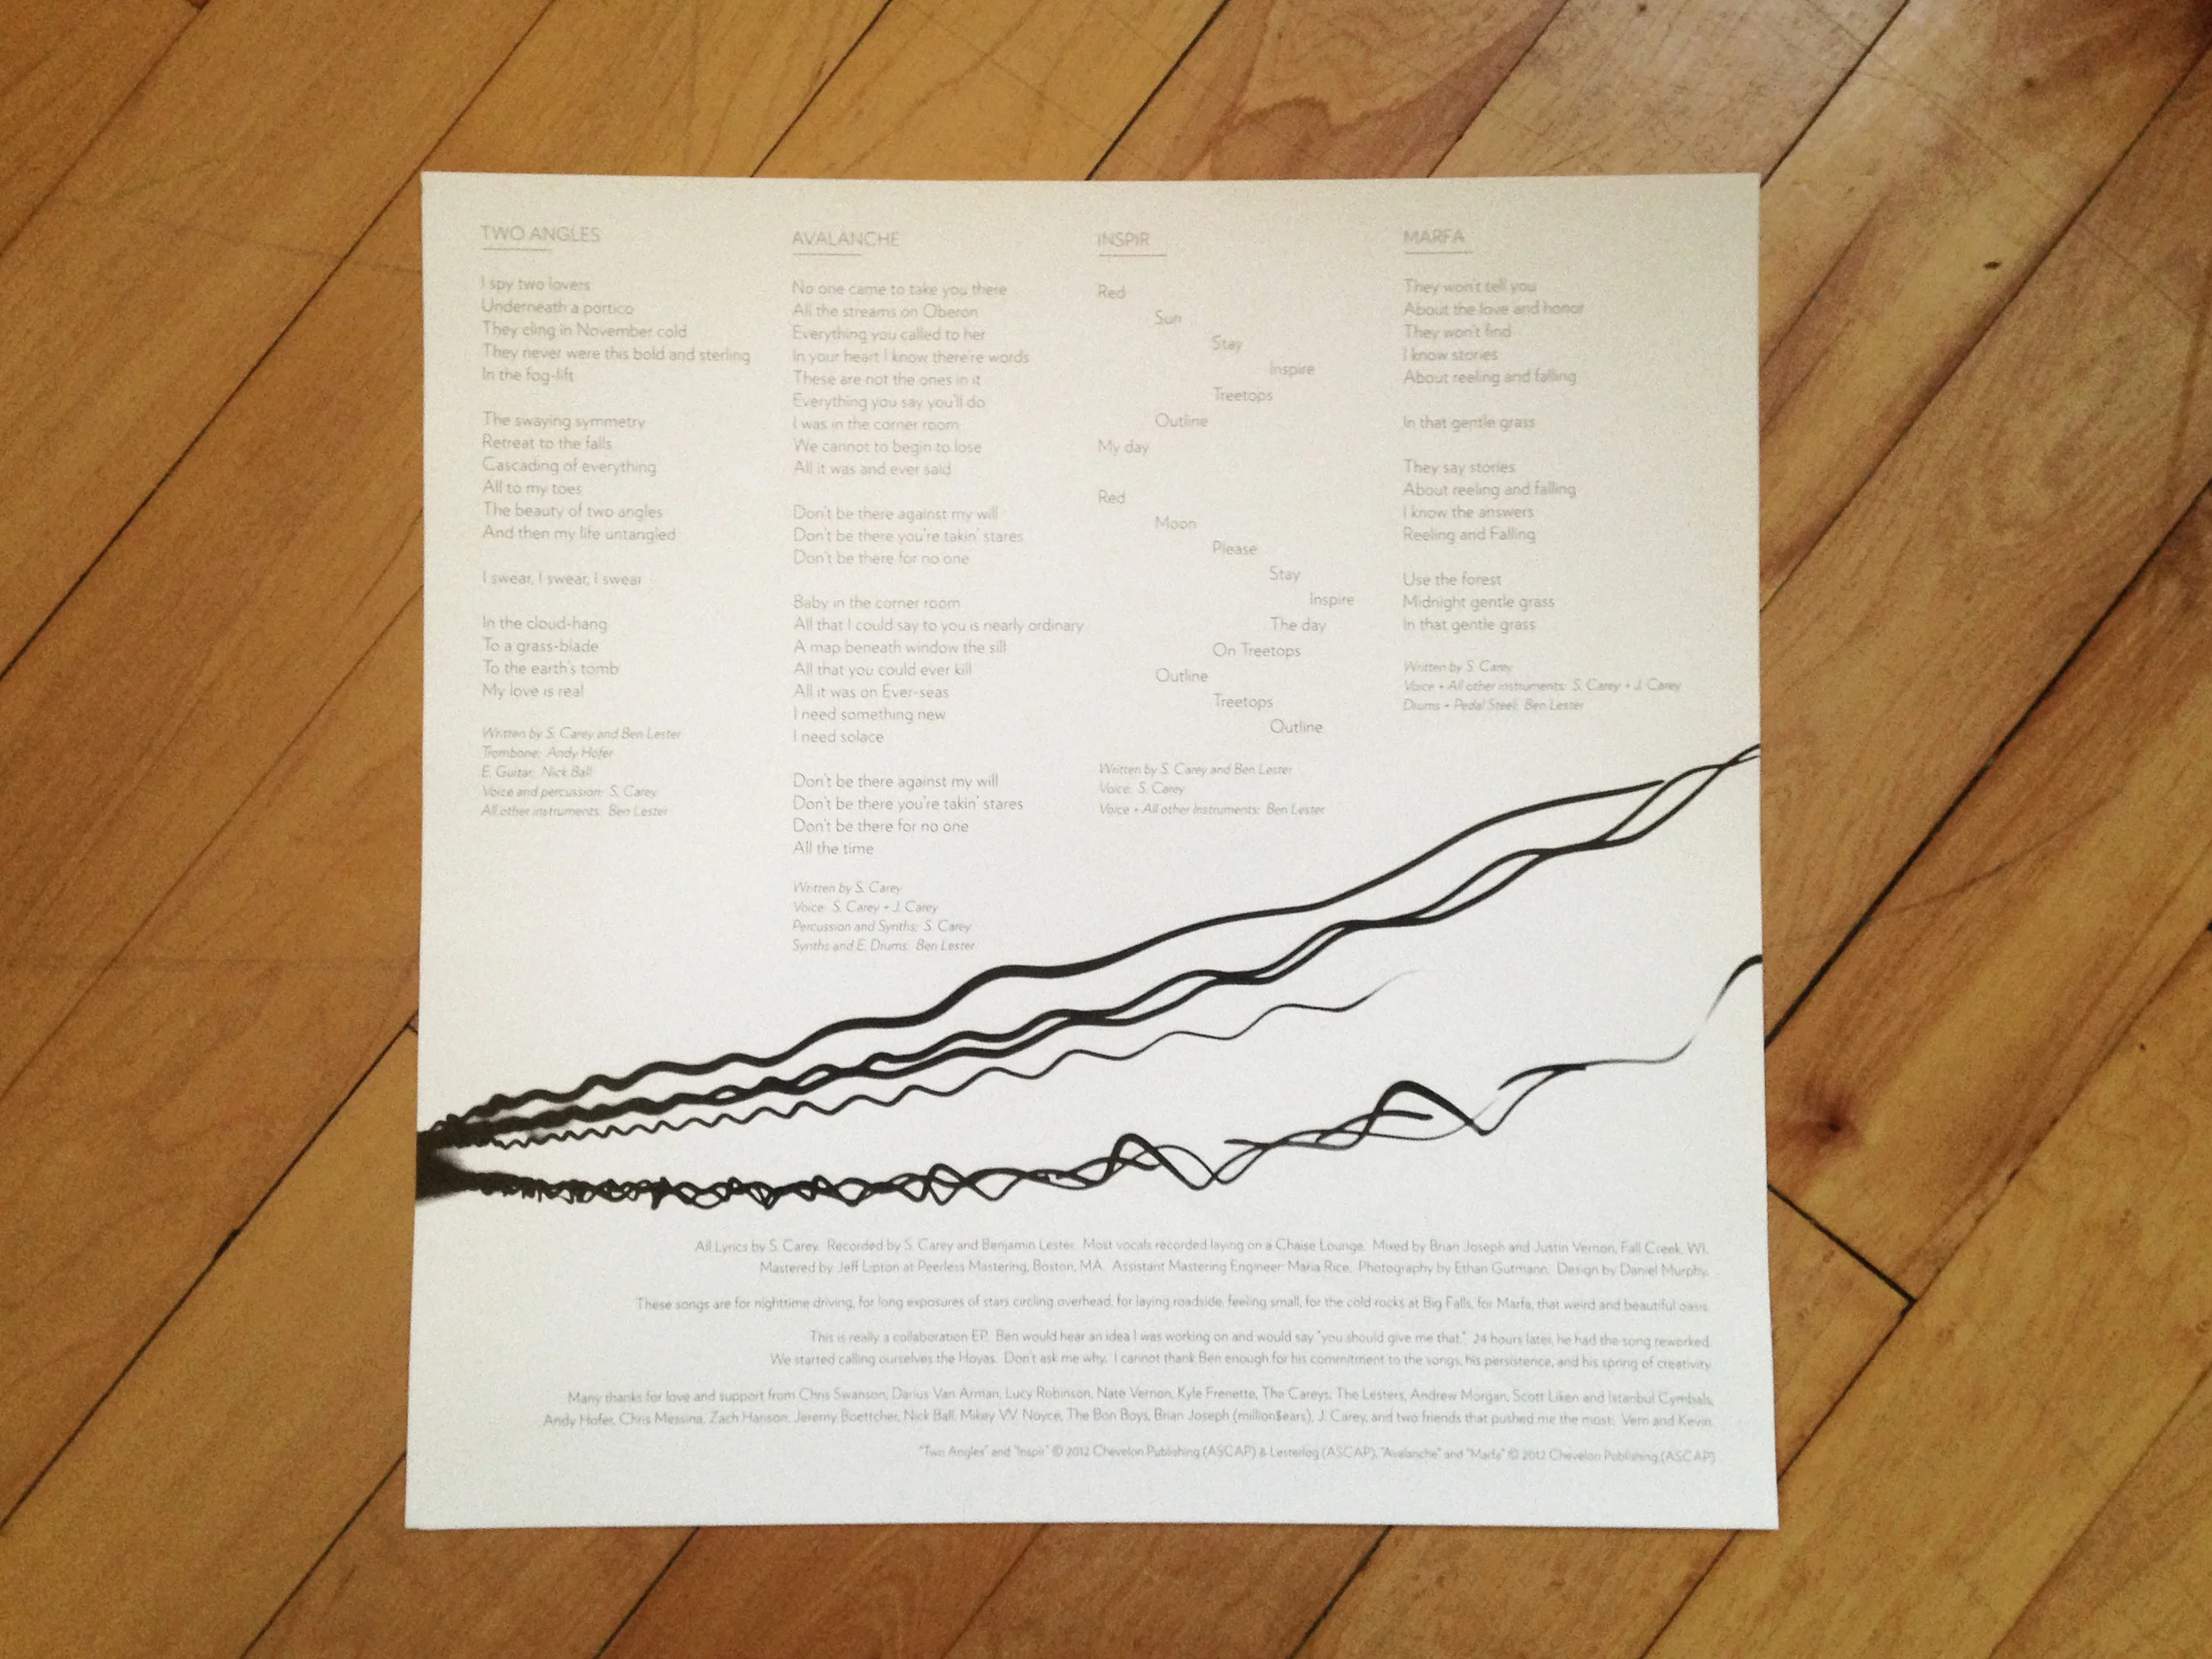 TWO ANGLES
I spy two lovers
Underneath a portico
They cling in November cold
They never were this bold and sterling
In the fog-lift
The swaying symmetry
Retreat to the falls
Cascading of everything
All to my toes
The beauty of two angles
And then my life untangled
I swear, I swear, I swear
In the cloud-hang
To a grass-blade
To the earth's tomb
My love is real
Written by S. Carey and Ben Lester
Trombone: Andy Hofer
E. Guitar: Nick Ball
Voice and percussion: S. Carey
All other instruments: Ben Lester
AVALANCHE
No one came to take you there
All the streams on Oberon
Everything you called to her
In your heart I know there're words
These are not the ones in it
Everything you say you'll do
I was in the corner room
We cannot to begin to lose
All it was and ever said
Don't be there against my will
Don't be there you're takin' stares
Don't be there for no one
Baby in the corner room
All that I could say to you is nearly ordinary
A map beneath window the sill
All that you could ever kill
All it was on Ever-seas
I need something new
I need solace
Don't be there against my will
Don't be there you're takin' stares
Don't be there for no one
All the time
Written by S. Carey
Voice: S. Carey + J. Carey
Percussion and Synths: S. Carey
Synths and E. Drums: Ben Lester
INSPIR
Red
Sun
Stay
Inspire
Treetops
Outline
My day
Red
Moon
Please
Stay
Inspire
The day
On Treetops
Outline
Treetops
Outline
Written by S. Carey and Ben Lester
Voice: S. Carey
Voice + All other Instruments: Ben Lester
MARFA
They won't tell you
About the love and honor
They won't find
I know stories
About reeling and falling
In that gentle grass
They say stories
About reeling and falling
I know the answers
Reeling and Falling
Use the forest
Midnight gentle grass
In that gentle grass
Written by S. Carey
Voice + All other instruments: S. Carey + J. Carey
Drums + Pedal Steel: Ben Lester
All Lyrics by S. Carey. Recorded by S. Carey and Benjamin Lester. Most vocals recorded laying on a Chaise Lounge. Mixed by Brian Joseph and Justin Vernon, Fall Creek, WI.
Mastered by Jeff Lipton at Peerless Mastering, Boston, MA. Assistant Mastering Engineer: Maria Rice. Photography by Ethan Gutmann. Design by Daniel Murphy.
These songs are for nighttime driving, for long exposures of stars circling overhead, for laying roadside, feeling small, for the cold rocks at Big Falls, for Marfa, that weird and beautiful oasis.
This is really a collaboration EP. Ben would hear an idea I was working on and would say "you should give me that." 24 hours later, he had the song reworked.
We started calling ourselves the Hoyas. Don't ask me why. I cannot thank Ben enough for his commitment to the songs, his persistence, and his spring of creativity.
Many thanks for love and support from Chris Swanson, Darius Van Arman, Lucy Robinson, Nate Vernon, Kyle Frenette, The Careys, The Lesters, Andrew Morgan, Scott Liken and Istanbul Cymbals,
Andy Hofer, Chris Messina, Zach Hanson, Jeremy Boettcher, Nick Ball, Mikey W. Noyce, The Bon Boys, Brian Joseph (million$ears), J. Carey, and two friends that pushed me the most: Vern and Kevin.
"Two Angles" and "Inspir" © 2012 Chevelon Publishing (ASCAP) & Lesterlog (ASCAP), "Avalanche" and "Marfa" © 2012 Chevelon Publishing (ASCAP)